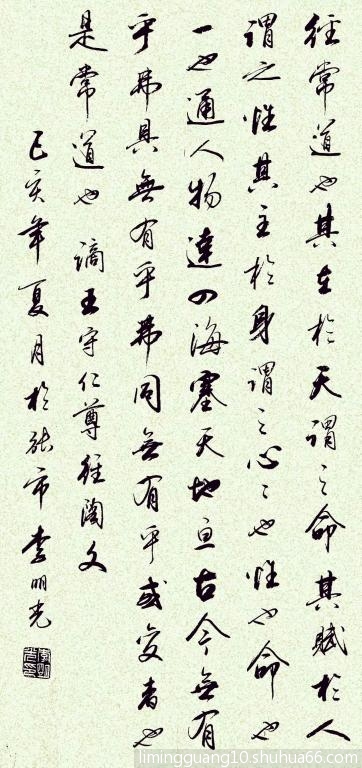 經常道也其在於天謂之命其賦於人
謂之性其主於身謂之心〻也性也命也
一也通人物達四海塞天地亘古今無有
乎弗具無有乎弗同無有乎或变者也
是常道也 摘王守仁尊經阁文
己亥年夏月於张市李明光
limingguang10.shuhua66.com